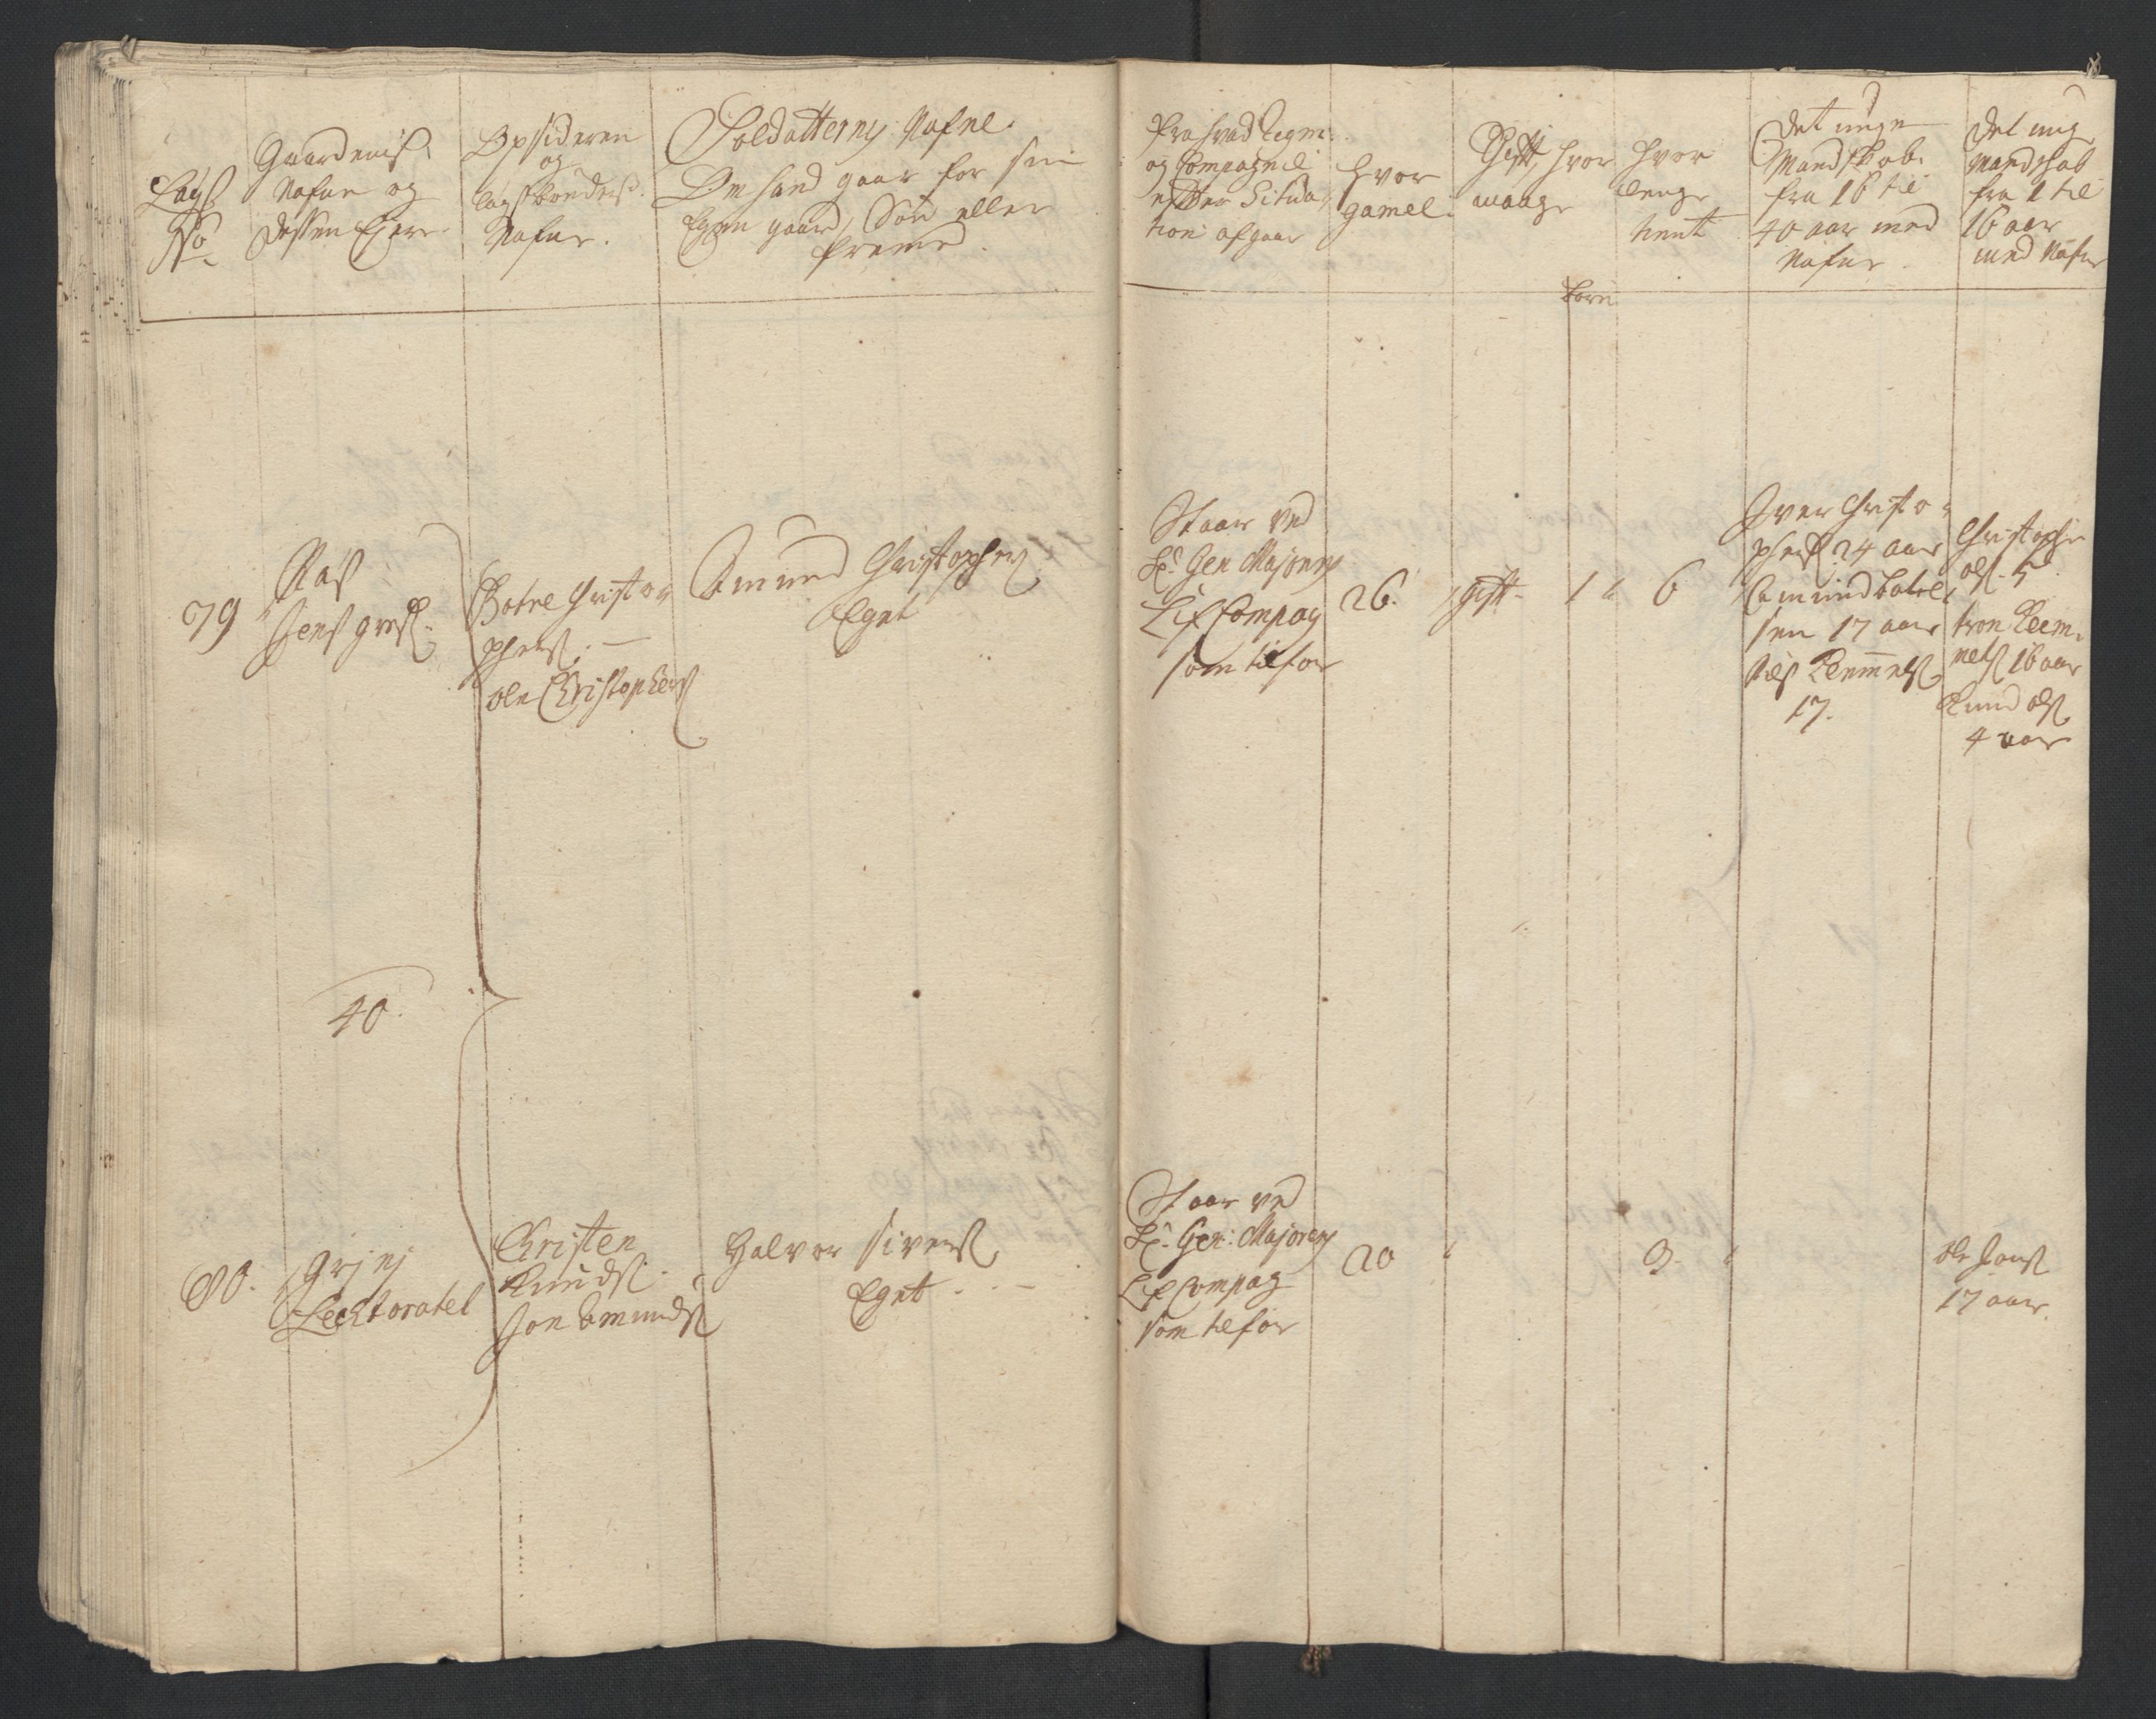 Lags
No
Gaardenis
Nafne og
dessen Ejere
Opsideren
og
lagsbønders
Nafne.
Soldatterns Nafne.
Om hand gaar for sin
Egen gaard, Søn eller
fremd.
Fra hvad Regim:
og Compagnie
efter Situa-
tion afgaar
hvor
gamel.
Gift, hvor
mange
børn
hvor
lenge
tient
det unge
Mandskab
fra 16 til
40 aar med
Nafne.
det ung
Mandskab
fra 1 til
16 aar
med Nafne
79
Aas
Jens
Botne Christo-
phers. —
ole Christophers
Amund Christophers
Eget
Staar ved
Hr. Gen Majorens
Lif Compag
som tilfor
26.
gift
1
6
Iver Christo-
phers 24 aar
Amund
sen 17 aar
17.
Christopher
ols. 5
16 aar
Knud ols
4 aar
40.
80.
Lectoratet
Christen
Knuds.
Jon Amunds
Halvor Sivers
Eget . . —
Staar ved
Hr. Gen: Majorens
Lif Compag
som tilfor
20
3.
ole Jons
17 aar.